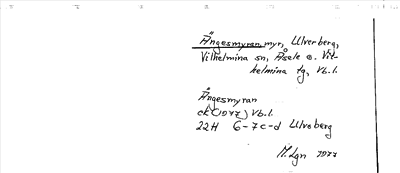 Ängesmyran myr, Ulverberg,
Vilhelmina sn, Åsele o. Vil-
helmina tg, Vb.l.
Ängesmyran
ek (1977) Vb.l.
22H 6-7c-d Ulvoberg
M.Lgn 1977